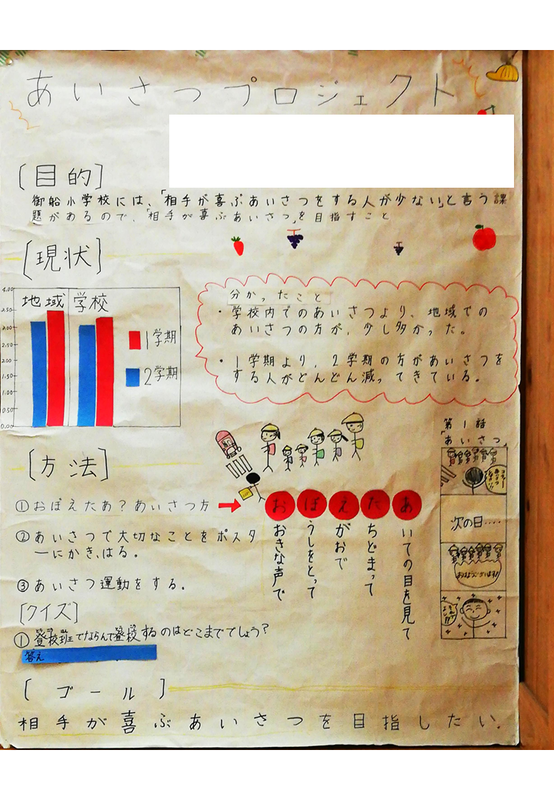 あいさつプロジェクト
[目的]
御船小学校には、「相手が喜ぶあいさつをする人が少ない」と言う課
題があるので、「相手が喜ぶあいさつ」を目指すこと
[現状]
地域 学校
1学期
2学期
4.00
3.50
3.00
2.50
2.00
1.50
1.00
0.50
0.00
分かったこと
・学校内でのあいさつより、地域での
あいさつの方が、少し多かった。
・1学期より、2学期の方があいさつを
する人がどんどん減ってきている。
[方法]
①おぼえたあ?あいさつ方
②あいさつで大切なことをポスタ
ーにかき、はる。
③あいさつ運動をする。
あいての目を見て
たちどまって
えがおで
ぼうしをとって
おおきな声で
第1話
あいさつ
次の日‥‥
おはようございます!
[クイズ]
①登校班でならんで登校するのはどこまででしょう?
答え
[ゴール]
相手が喜ぶあいさつを目指したい。